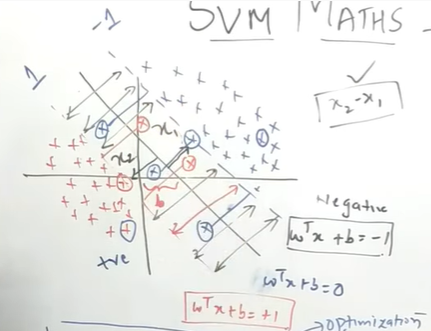 SVM MATHS
-1
1
x₂-x₁
x₁
x₂
b
Negative
wᵀx + b = -1
+ve
wᵀx+b=0
wᵀx+b=+1
→optimization